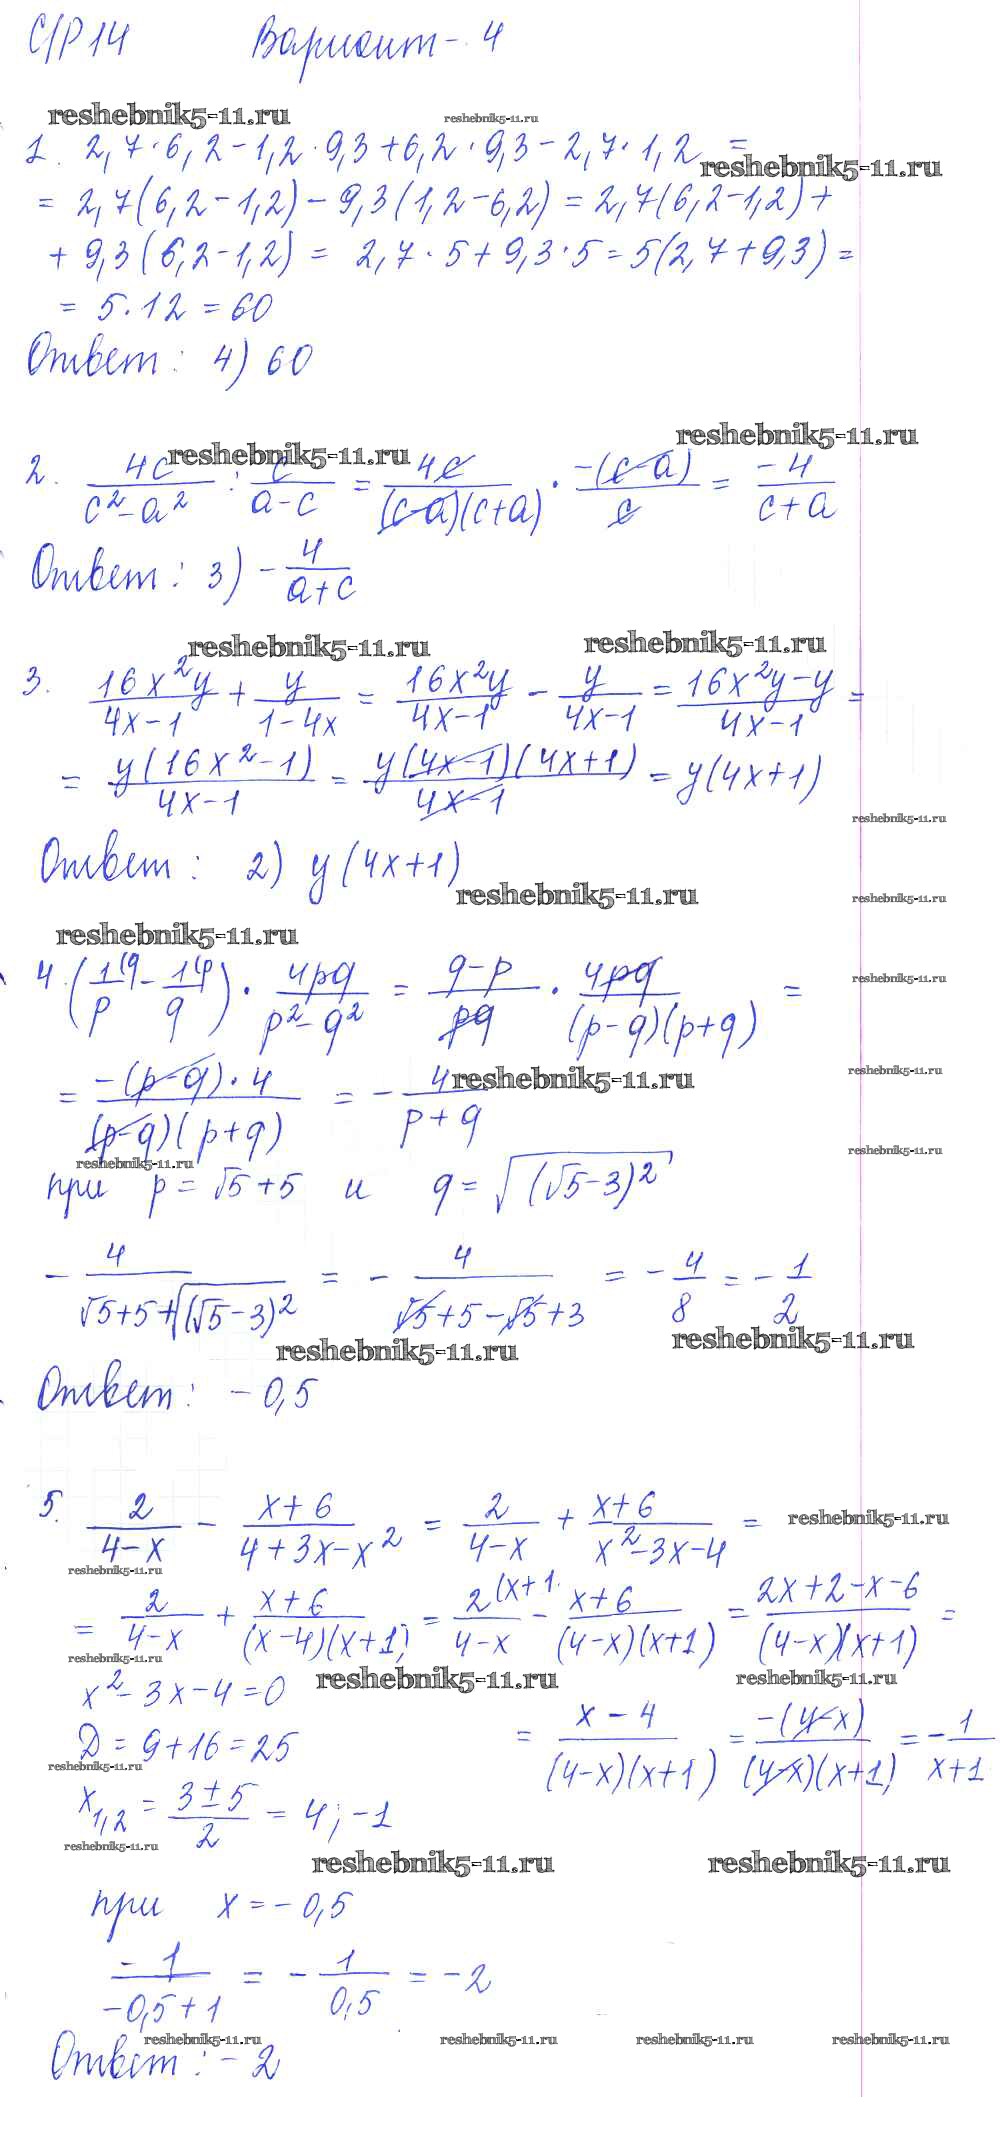 С/Р 14 Вариант - 4
reshebnik5-11.ru reshebnik5-11.ru
1. 2,7·6,2-1,2·9,3+6,2·9,3-2,7·1,2 =
reshebnik5-11.ru
= 2,7(6,2-1,2)-9,3(1,2-6,2) = 2,7(6,2-1,2)+
+ 9,3(6,2-1,2) = 2,7·5+9,3·5=5(2,7+9,3)=
= 5·12=60
Ответ: 4) 60
reshebnik5-11.ru reshebnik5-11.ru
2. 4c/(c²-a²) : c/(a-c) = 4c/((c-a)(c+a)) · -(c-a)/c = -4/(c+a)
Ответ: 3) -4/(a+c)
reshebnik5-11.ru reshebnik5-11.ru
3. 16x²y/(4x-1) + y/(1-4x) = 16x²y/(4x-1) - y/(4x-1) = (16x²y-y)/(4x-1) =
= y(16x²-1)/(4x-1) = y(4x-1)(4x+1)/(4x-1) = y(4x+1)
reshebnik5-11.ru
Ответ: 2) y(4x+1)
reshebnik5-11.ru reshebnik5-11.ru
reshebnik5-11.ru
4. (1(q/p - 1(p/q) · 4pq/(p²-q²) = (q-p)/pq · 4pq/((p-q)(p+q)) =
reshebnik5-11.ru
= -(p-q)·4/((p-q)(p+q)) = -4/(p+q)
reshebnik5-11.ru reshebnik5-11.ru
reshebnik5-11.ru reshebnik5-11.ru
при p=√5+5 и q=√((√5-3)²)
-4/(√5+5+√((√5-3)²)) = -4/(√5+5-√5+3) = -4/8 = -1/2
reshebnik5-11.ru reshebnik5-11.ru
Ответ: -0,5
5. 2/(4-x) - (x+6)/(4+3x-x²) = 2/(4-x) + (x+6)/(x²-3x-4) =
reshebnik5-11.ru
reshebnik5-11.ru
= 2/(4-x) + (x+6)/((x-4)(x+1)) = 2(x+1/(4-x) - (x+6)/((4-x)(x+1)) = (2x+2-x-6)/((4-x)(x+1)) =
reshebnik5-11.ru reshebnik5-11.ru reshebnik5-11.ru
x²-3x-4=0
= (x-4)/((4-x)(x+1)) = -(4-x)/((4-x)(x+1)) = -1/(x+1)
D=9+16=25
reshebnik5-11.ru
x1,2 = (3±5)/2 = 4; -1
reshebnik5-11.ru
reshebnik5-11.ru reshebnik5-11.ru
при x=-0,5
-1/(-0,5+1) = -1/0,5 = -2
reshebnik5-11.ru reshebnik5-11.ru reshebnik5-11.ru reshebnik5-11.ru
Ответ: -2